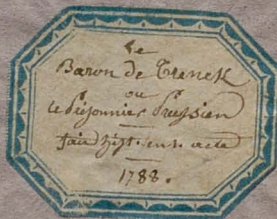 Le
Baron de Trenck
ou
le Prisonnier Prussien
fait hist. en 1. acte
1788.